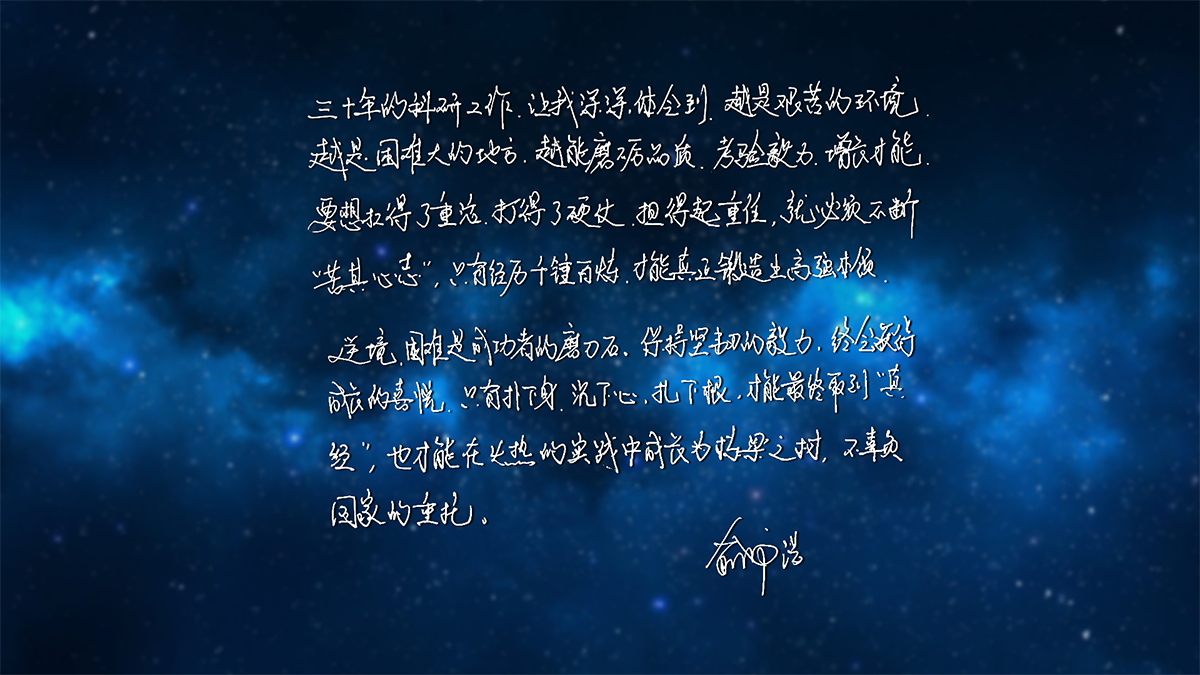 三十年的科研工作，让我深深体会到，越是艰苦的环境，
越是困难大的地方，越能磨砺品质，考验毅力，增长才能。
要想扛得了重活，打得了硬仗，担得起重任，就必须不断
“苦其心志”，只有经历千锤百炼，才能真正锻造出高强本领。
逆境、困难是成功者的磨刀石，保持坚韧的毅力，终会收获
成长的喜悦。只有扑下身，沉下心，扎下根，才能最终取到“真
经”，也才能在火热的实践中成长为栋梁之材，不辜负
国家的重托。